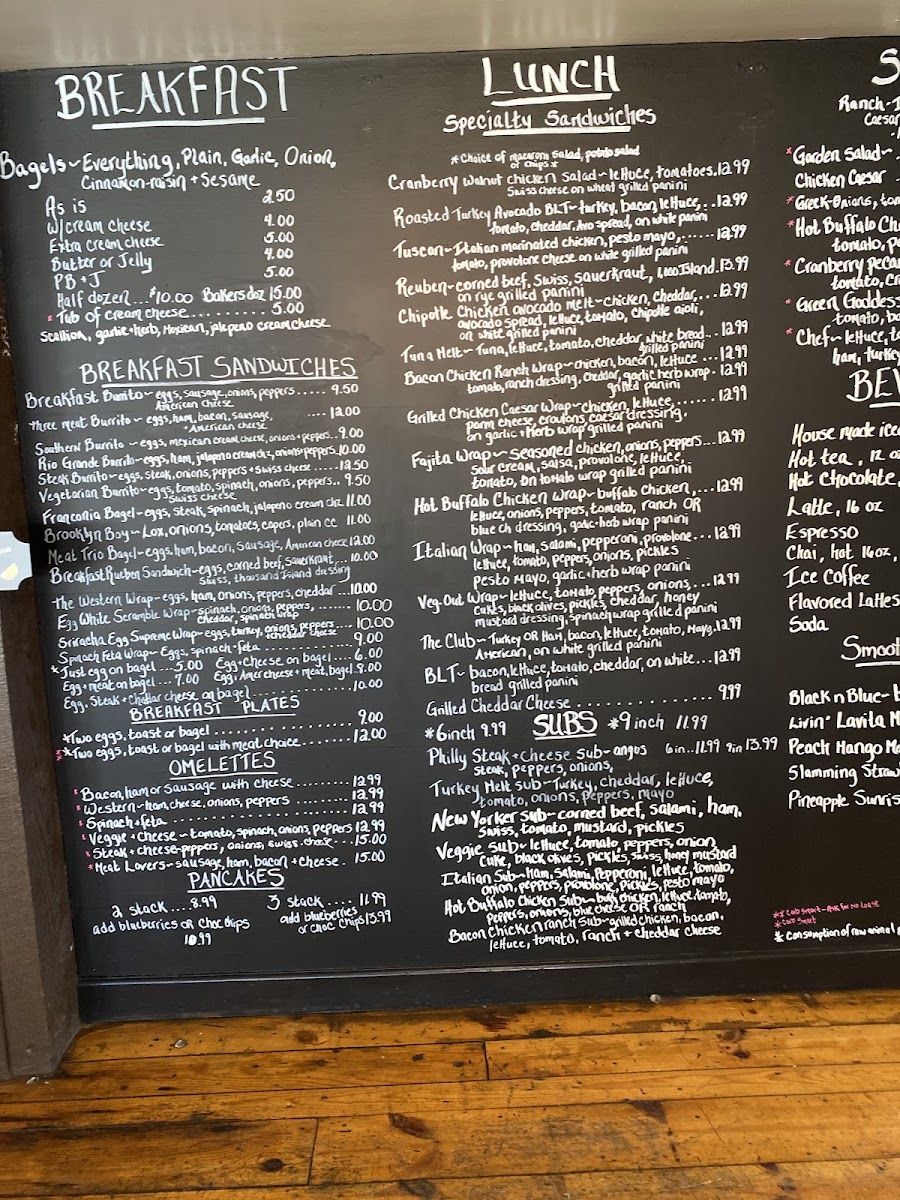 BREAKFAST
Bagels~Everything, Plain, Garlic, Onion,
Cinnamon-raisin + Sesame
As is 2.50
W/cream cheese 4.00
Extra cream cheese 5.00
Butter or Jelly 4.00
PB + J 5.00
Half dozen...$10.00 Bakers doz 15.00
* Tub of cream cheese.......... 5.00
Scallion, garlic+herb, Mexican, jalapeno creamcheese
BREAKFAST SANDWICHES
Breakfast Burrito~eggs, sausage, onions, peppers ..... 9.50
American cheese
Three meat Burrito~eggs, ham, bacon, sausage, .... 12.00
+ American cheese
Southern Burrito ~ eggs, mexican cream cheese, onions + peppers..9.00
Rio Grande Burrito~eggs, ham, jalapeno cream chz, onions+peppers.10.00
Steak Burrito~eggs, steak, onions, peppers + Swiss cheese ...... 12.50
Vegetarian Burrito~eggs, tomato, spinach, onions, peppers.. 9.50
Swiss cheese
Franconia Bagel~eggs, steak, spinach, jalapeno cream chz. 11.00
Brooklyn Boy~Lox, onions, tomatoes, capers, plain cc 11.00
Meat Trio Bagel~eggs, ham, bacon, sausage, American cheez 12.00
Breakfast Rueben Sandwich~eggs, corned beef, sauerkraut....10.00
Swiss, thousand Island dressing
The Western Wrap~eggs, ham, onions, peppers, cheddar ...10.00
Egg White Scramble Wrap~spinach, onions, peppers, ....... 10.00
cheddar, spinach wrap
Sriracha Egg Supreme Wrap~eggs, turkey, onions, peppers .... 10.00
+cheddar cheese
Spinach Feta Wrap~Eggs, spinach+feta .................. 9.00
*Just egg on bagel ...5.00 Egg+cheese on bagel.... 6.00
Egg+meat on bagel ... 7.00 Egg, Amer cheese + meat, bagel.8.00
Egg, Steak + Cheddar cheese on bagel................ 10.00
BREAKFAST PLATES
*Two eggs, toast or bagel ................... 9.00
*Two eggs, toast or bagel with meat choice......... 12.00
OMELETTES
*Bacon, ham or Sausage with cheese ......... 12.99
*Western~ham, cheese, onions, peppers ........ 12.99
*Spinach+feta....................... 12.99
*Veggie + Cheese ~ tomato, spinach, onions, peppers 12.99
*Steak+cheese~peppers, onions, swiss cheese....15.00
*Meat Lovers~sausage, ham, bacon + cheese. 15.00
PANCAKES
2 stack....8.99 3 stack .... 11.99
add blueberries or choc chips add blueberries
10.99 or choc chips 13.99
LUNCH
Specialty Sandwiches
*Choice of macaroni salad, potato salad
or chips*
Cranberry Walnut chicken Salad~lettuce, tomatoes.12.99
Swiss cheese on wheat grilled panini
Roasted Turkey Avocado BLT~turkey, bacon, lettuce,..12.99
tomato, cheddar, Avo spread, on white panini
Tuscan~Italian marinated chicken, pesto mayo,...... 12.99
tomato, provolone cheese on white grilled panini
Reuben~corned beef, Swiss, sauerkraut, 1,000 Island.13.99
on rye grilled panini
Chipotle Chicken avocado melt~chicken, cheddar,...12.99
avocado spread, lettuce, tomato, chipotle aioli,
on white grilled panini
Tuna Melt~Tuna, lettuce, tomato, cheddar, white bread...12.99
grilled panini
Bacon Chicken Ranch Wrap~chicken, bacon, lettuce ... 12.99
tomato, ranch dressing, cheddar, garlic herb wrap - 12.99
grilled panini
Grilled Chicken Caesar Wrap~chicken, lettuce,...... 12.99
parm cheese, croutons, caesar dressing,
on garlic + Herb wrap grilled panini
Fajita Wrap~seasoned chicken, onions, peppers...12.99
sour cream, salsa, provolone, lettuce,
tomato, on tomato wrap grilled panini
Hot Buffalo Chicken Wrap~buffalo chicken,...12.99
lettuce, onions, peppers, tomato, ranch OR
blue ch dressing, garlic-herb wrap panini
Italian Wrap~ham, salami, pepperoni, provolone...12.99
lettuce, tomato, peppers, onions, pickles
pesto mayo, garlic+herb wrap panini
Veg.Out Wrap~lettuce, tomato, peppers, onions,... 12.99
cukes, black olives, pickles, cheddar, honey
mustard dressing, spinach wrap grilled panini
The Club~Turkey OR Ham, bacon, lettuce, tomato, Mayo.12.99
American, on white grilled panini
BLT~bacon, lettuce, tomato, cheddar, on white...12.99
bread grilled panini
Grilled Cheddar Cheese................. 9.99
*6inch 9.99 SUBS *9inch 11.99
Philly Steak+Cheese Sub~angus 6in..11.99 9in 13.99
steak, peppers, onions,
Turkey Melt sub~Turkey, cheddar, lettuce,
tomato, onions, peppers, mayo
New Yorker Sub~corned beef, salami, ham,
Swiss, tomato, mustard, pickles
Veggie Sub~lettuce, tomato, peppers, onion,
cuke, black olives, pickles, swiss, honey mustard
Italian Sub~Ham, Salami, Pepperoni, lettuce, tomato,
onion, peppers, provolone, pickles, pesto mayo
Hot Buffalo Chicken Sub~buff chicken, lettuce, tomato,
peppers, onions, blue cheese OR ranch
Bacon chicken ranch Sub~grilled chicken, bacon,
lettuce, tomato, ranch + cheddar cheese
S
Ranch-I
Caesar
*Garden Salad~
Chicken Caesar
*Greek-Onions, tom
*Hot Buffalo Chi
tomato, pe
*Cranberry Pecan
tomato, Cr
*Green Goddess
tomato, ba
*Chef~lettuce, to
ham, turkey
BEV
House made iced
Hot tea, 12 oz
Hot Chocolate,
Latte, 16 oz
Espresso
Chai, hot 16oz,
Ice Coffee
Flavored Lattes
Soda
Smoot
Black n Blue~b
Livin' Lavita M
Peach Mango Ma
Slamming Straw
Pineapple Sunris
** Cold Smart - Ask for no toast
* Cold Smart
* Consumption of raw animal p